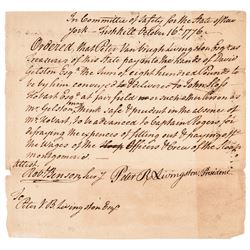 In Committee of Safety for the State of New
York - Fishkill October 16th 1776.
Ordered that Peter Van Brugh Livingston Esqr as
Treasurer of this State pay into the hands of David
Gelston Esqr the Sum of eight hundred Pounds to
be by him conveyed & delivered to John Sloss
Hobart Esqr at fairfield or such other person as
Mr Gelston may think safe & prudent in the absence
of Mr Hobart, to be advanced to Captain Rogers, for
defraying the expences of filling out & paying off
the Wages of the Officers & Crew of the Sloop
Montgomerie.
Attest
Robt Benson Secy Peter R Livingston President
To
Peter V B Livingston Esqr